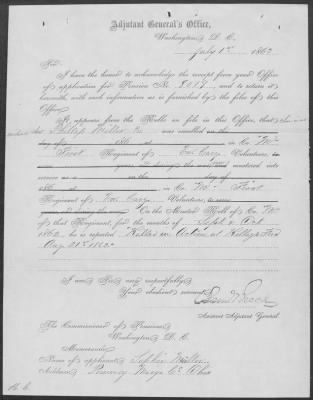 Adjutant General's Office,
Washington D. C.
July 1st 1863
Sir:
I have the honor to acknowledge the receipt from your Office
of application for Pension No. 8017, and to return it
herewith, with such information as is furnished by the files of this
Office.
It appears from the Rolls on file in this Office, that
Phillip Miller was enrolled on the
day of 186 at in Co.
First Regiment of Volunteers,
service as a on the day of
186 at in Co. First
Regiment of Volunteers,
On the Muster Roll of Co.
of that Regiment, for the months of Sept & Oct
1862, he is reported Killed in Action at
Aug 21st 1862
I am Sir, very respectfully,
Your obedient servant,
Assistant Adjutant General.
The Commissioner of Pensions
Washington D. C.
Memoranda:
Name of applicant, Sophia Miller
Address, Pomeroy Meigs Co Ohio